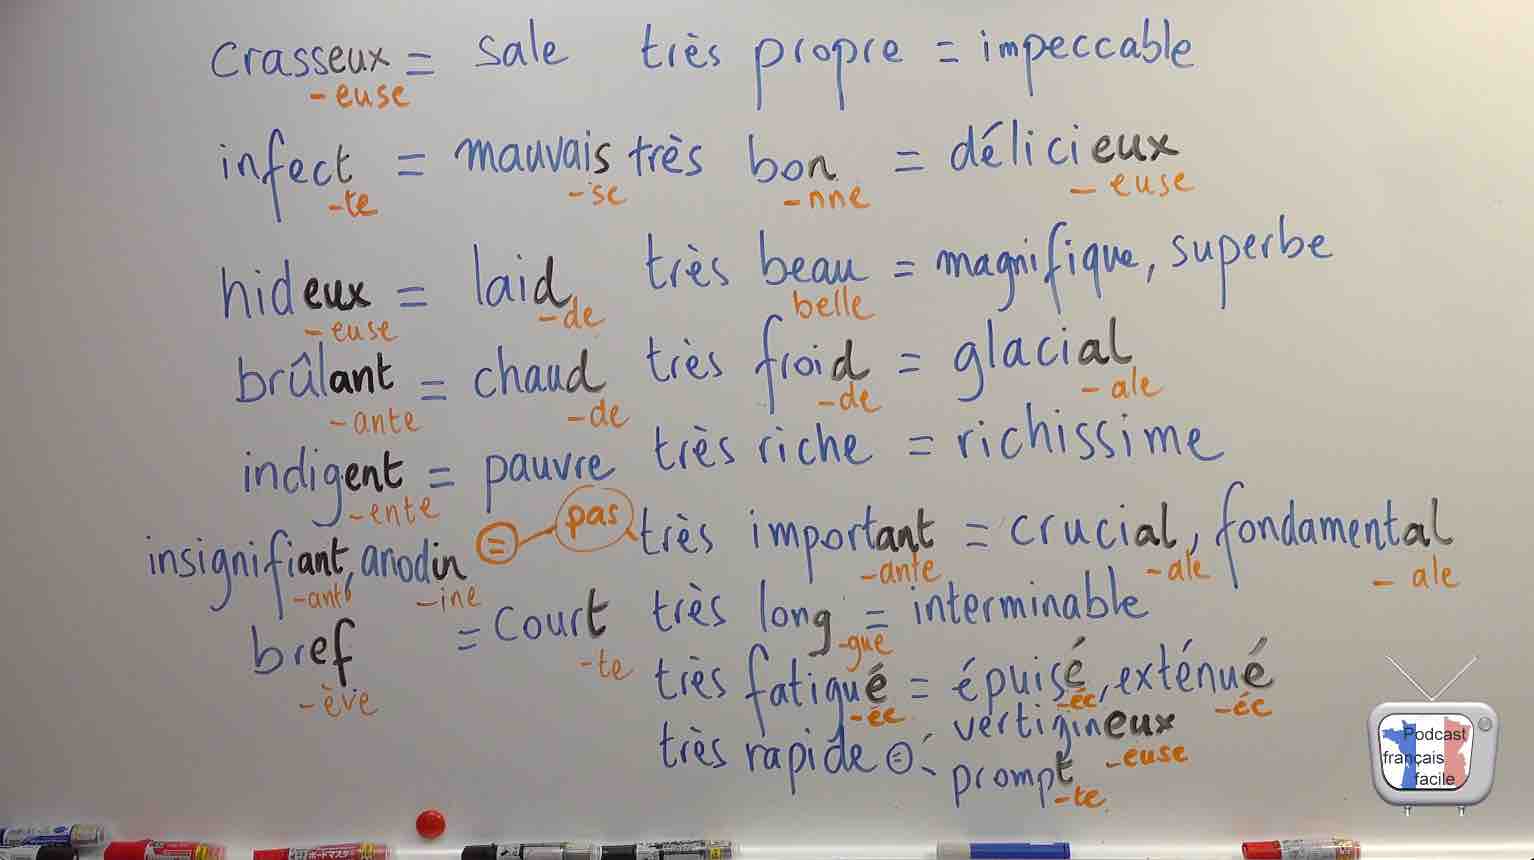 crasseux = sale très propre = impeccable
-euse
infect = mauvais très bon = délicieux
-te -se -nne -euse
hideux = laid très beau = magnifique, superbe
-euse -de belle
brûlant = chaud très froid = glacial
-ante -de -de -ale
indigent = pauvre très riche = richissime
-ente
insignifiant, anodin = pas très important = crucial, fondamental
-ante -ine -ante -ale -ale
bref = court très long = interminable
-ève -te -gue
très fatigué = épuisé, exténué
-ée -ée -ée
très rapide = vertigineux
-euse
prompt
-te
Podcast
français
facile